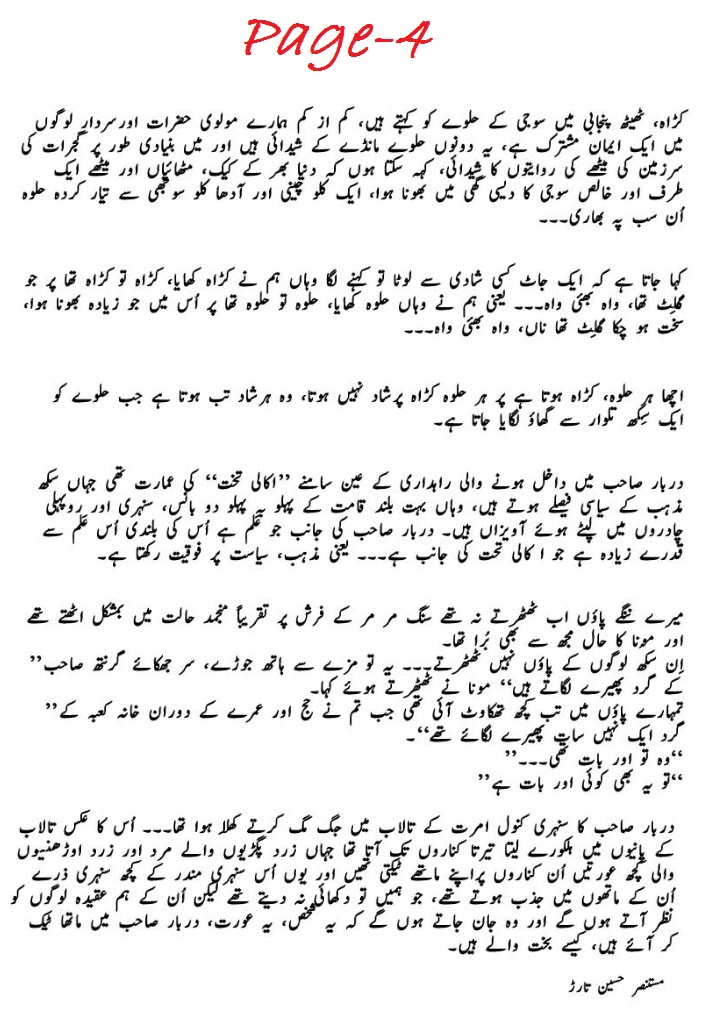 Page-4
کڑاہ، ٹھیٹھ پنجابی میں سوجی کے حلوے کو کہتے ہیں، کم از کم ہمارے مولوی حضرات اور سردار لوگوں
میں ایک ایمان مشترک ہے، یہ دونوں حلوے مانڈے کے شیدائی ہیں اور میں بنیادی طور پر گجرات کی
سرزمین کی میٹھے کی روایتوں کا شیدائی، کہہ سکتا ہوں کہ دنیا بھر کے کیک، مٹھائیاں اور میٹھے ایک
طرف اور خالص سوجی کا دیسی گھی میں بھونا ہوا، ایک کلو چینی اور آدھا کلو سوگھی سے تیار کردہ حلوہ
اُن سب پہ بھاری۔۔۔
کہا جاتا ہے کہ ایک جاٹ کسی شادی سے لوٹا تو کہنے لگا وہاں ہم نے کڑاہ کھایا، کڑاہ تو کڑاہ تھا پر جو
گلِٹ تھا، واہ بھئی واہ۔۔۔ یعنی ہم نے وہاں حلوہ کھایا، حلوہ تو حلوہ تھا پر اُس میں جو زیادہ بھونا ہوا،
سخت ہو چکا گلِٹ تھا ناں، واہ بھئی واہ۔۔۔
اچھا ہر حلوہ، کڑاہ ہوتا ہے پر ہر حلوہ کڑاہ پرشاد نہیں ہوتا، وہ ہرشاد تب ہوتا ہے جب حلوے کو
ایک سِکھ تلوار سے گھاؤ لگایا جاتا ہے۔
دربار صاحب میں داخل ہونے والی راہداری کے عین سامنے ’’اکالی تخت‘‘ کی عمارت تھی جہاں سکھ
مذہب کے سیاسی فیصلے ہوتے ہیں، وہاں بہت بلند قامت کے پہلو بہ پہلو دو بانس، سنہری اور روپہلی
چادروں میں لپٹے ہوئے آویزاں ہیں۔ دربار صاحب کی جانب جو عَلم ہے اُس کی بلندی اُس عَلم سے
قدرے زیادہ ہے جو ا کالی تخت کی جانب ہے۔۔۔ یعنی مذہب، سیاست پر فوقیت رکھتا ہے۔
میرے ننگے پاؤں اب ٹھٹھرتے نہ تھے سنگ مر مر کے فرش پر تقریباً منجمد حالت میں بمشکل اٹھتے تھے
اور مونا کا حال مجھ سے بھی بُرا تھا۔
اِن سکھ لوگوں کے پاؤں نہیں ٹھٹھرتے۔۔۔ یہ تو مزے سے ہاتھ جوڑے، سر جھکائے گرنتھ صاحب’’
کے گرد پھیرے لگاتے ہیں‘‘ مونا نے ٹھٹھرتے ہوئے کہا۔
تمہارے پاؤں میں تب کچھ تھکاوٹ آئی تھی جب تم نے حج اور عمرے کے دوران خانہ کعبہ کے’’
گرد ایک نہیں سات پھیرے لگائے تھے‘‘۔
‘‘وہ تو اور بات تھی۔۔۔’’
‘‘تو یہ بھی کوئی اور بات ہے’’
دربار صاحب کا سنہری کنول امرت کے تالاب میں جگ مگ کرتے کھلا ہوا تھا۔۔۔ اُس کا عکس تالاب
کے پانیوں میں ہلکورے لیتا تیرتا کناروں تک آتا تھا جہاں زرد پگڑیوں والے مرد اور زرد اوڑھنیوں
والی کچھ عورتیں اُن کناروں پر اپنے ماتھے ٹیکتی تھیں اور یوں اُس سنہری مندر کے کچھ سنہری ذرے
اُن کے ماتھوں میں جذب ہوتے تھے، جو ہمیں تو دکھائی نہ دیتے تھے لیکن اُن کے ہم عقیدہ لوگوں کو
نظر آتے ہوں گے اور وہ جان جاتے ہوں گے کہ یہ شخص، یہ عورت، دربار صاحب میں ماتھا ٹیک
کر آئے ہیں، کیسے بخت والے ہیں۔
مستنصر حسین تارڑ